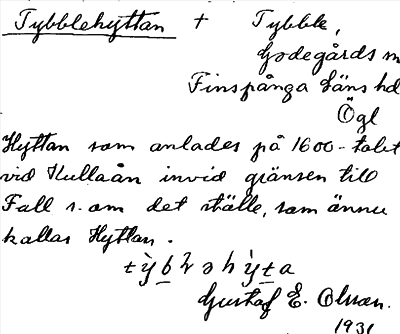 Tybblehyttan + Tybble,
Godegårds sn
Finspånga läns hd
Ögl
Hyttan som anlades på 1600-talet
vid Hullaån invid gränsen till
Fall s. om det ställe, som ännu
kallas Hyttan.
Gustaf E. Olsson.
1931